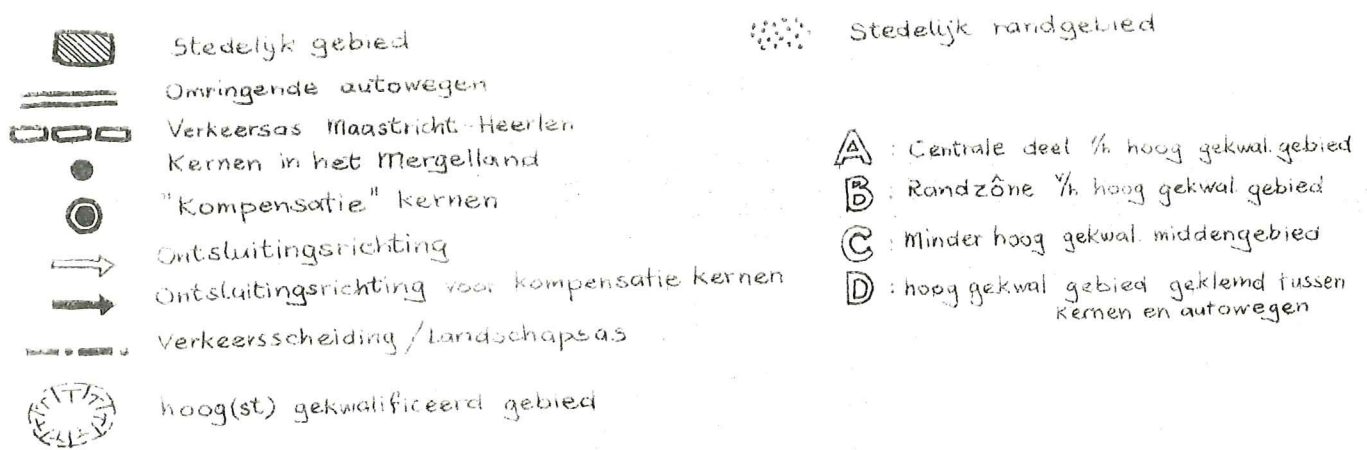 Stedelijk gebied
Omringende autowegen
Verkeersas Maastricht-Heerlen
Kernen in het Mergelland
"Kompensatie" kernen
Ontsluitingsrichting
Ontsluitingsrichting voor kompensatie kernen
Verkeersscheiding/Landschapsas
hoog(st) gekwalificeerd gebied
Stedelijk randgebied
A : Centrale deel v/h hoog gekwal. gebied
B : Randzône v/h hoog gekwal gebied
C : Minder hoog gekwal. middengebied
D : hoog gekwal gebied geklemd tussen
kernen en autowegen